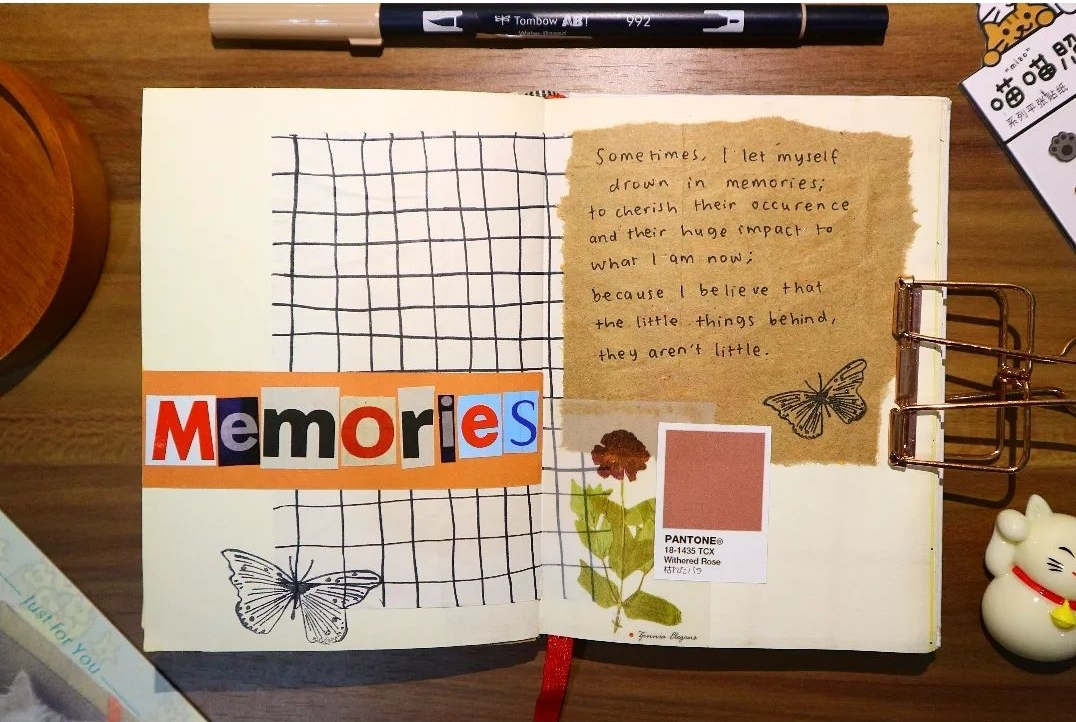 Tombow ABT 992
"miao"
喵喵
系列平张贴纸
Sometimes, I let myself
drown in memories;
to cherish their occurence
and their huge impact to
what I am now;
because I believe that
the little things behind,
they aren't little.
Memories
PANTONE®
18-1435 TCX
Withered Rose
枯れたバラ
Zinnia Elegans
Just for You